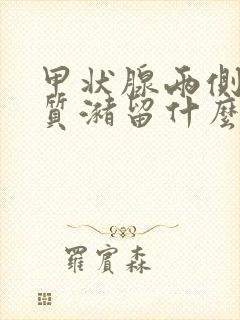 甲状腺兩側
質瀦留什麼
羅賓森